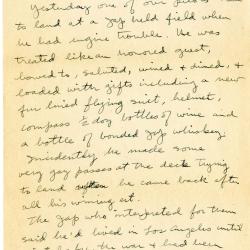 Yesterday one of our
to land at a Jap held field when
he had engine trouble. He was
treated like an honored guest,
bowed to, saluted, wined & dined, &
loaded with gifts including a new
fur lined flying suit, helmet,
compass ½ doz bottles of wine and
a bottle of bonded Jap whiskey.
Incidently, he made some
very zay passes at the deck trying
to land when he came back after
all his wining ect.
The Jap who interpreted for them
said he'd lived in Los Angeles until
the war & had been